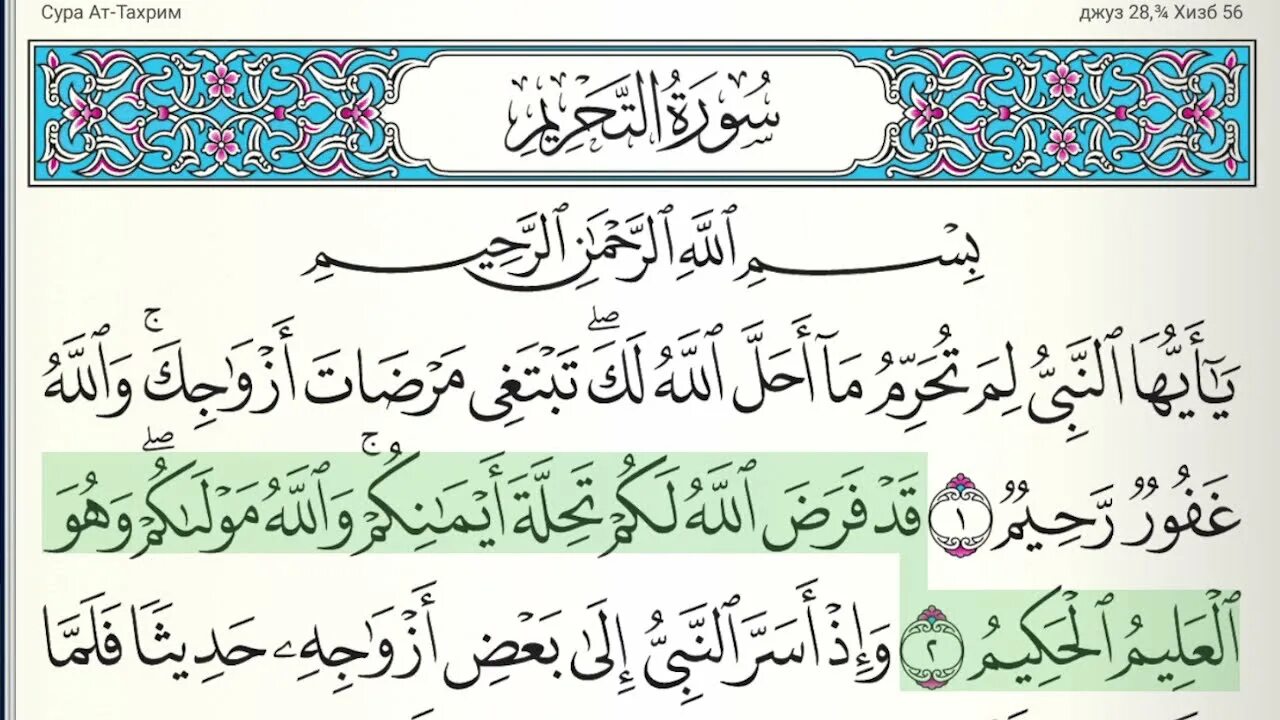 Сура Ат-Тахрим
джуз 28,¾ Хизб 56
سُورَةُ التَّحْرِيمِ
بِسْمِ ٱللَّهِ ٱلرَّحْمَٰنِ ٱلرَّحِيمِ
يَٰٓأَيُّهَا ٱلنَّبِىُّ لِمَ تُحَرِّمُ مَآ أَحَلَّ ٱللَّهُ لَكَ ۖ تَبْتَغِى مَرْضَاتَ أَزْوَٰجِكَ ۚ وَٱللَّهُ
غَفُورٌ رَّحِيمٌ ١ قَدْ فَرَضَ ٱللَّهُ لَكُمْ تَحِلَّةَ أَيْمَٰنِكُمْ ۚ وَٱللَّهُ مَوْلَىٰكُمْ ۖ وَهُوَ
ٱلْعَلِيمُ ٱلْحَكِيمُ ٢ وَإِذْ أَسَرَّ ٱلنَّبِىُّ إِلَىٰ بَعْضِ أَزْوَٰجِهِۦ حَدِيثًا فَلَمَّا